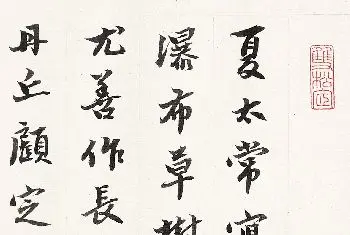 夏太常
瀑布草
尤善作長
丹丘顧定